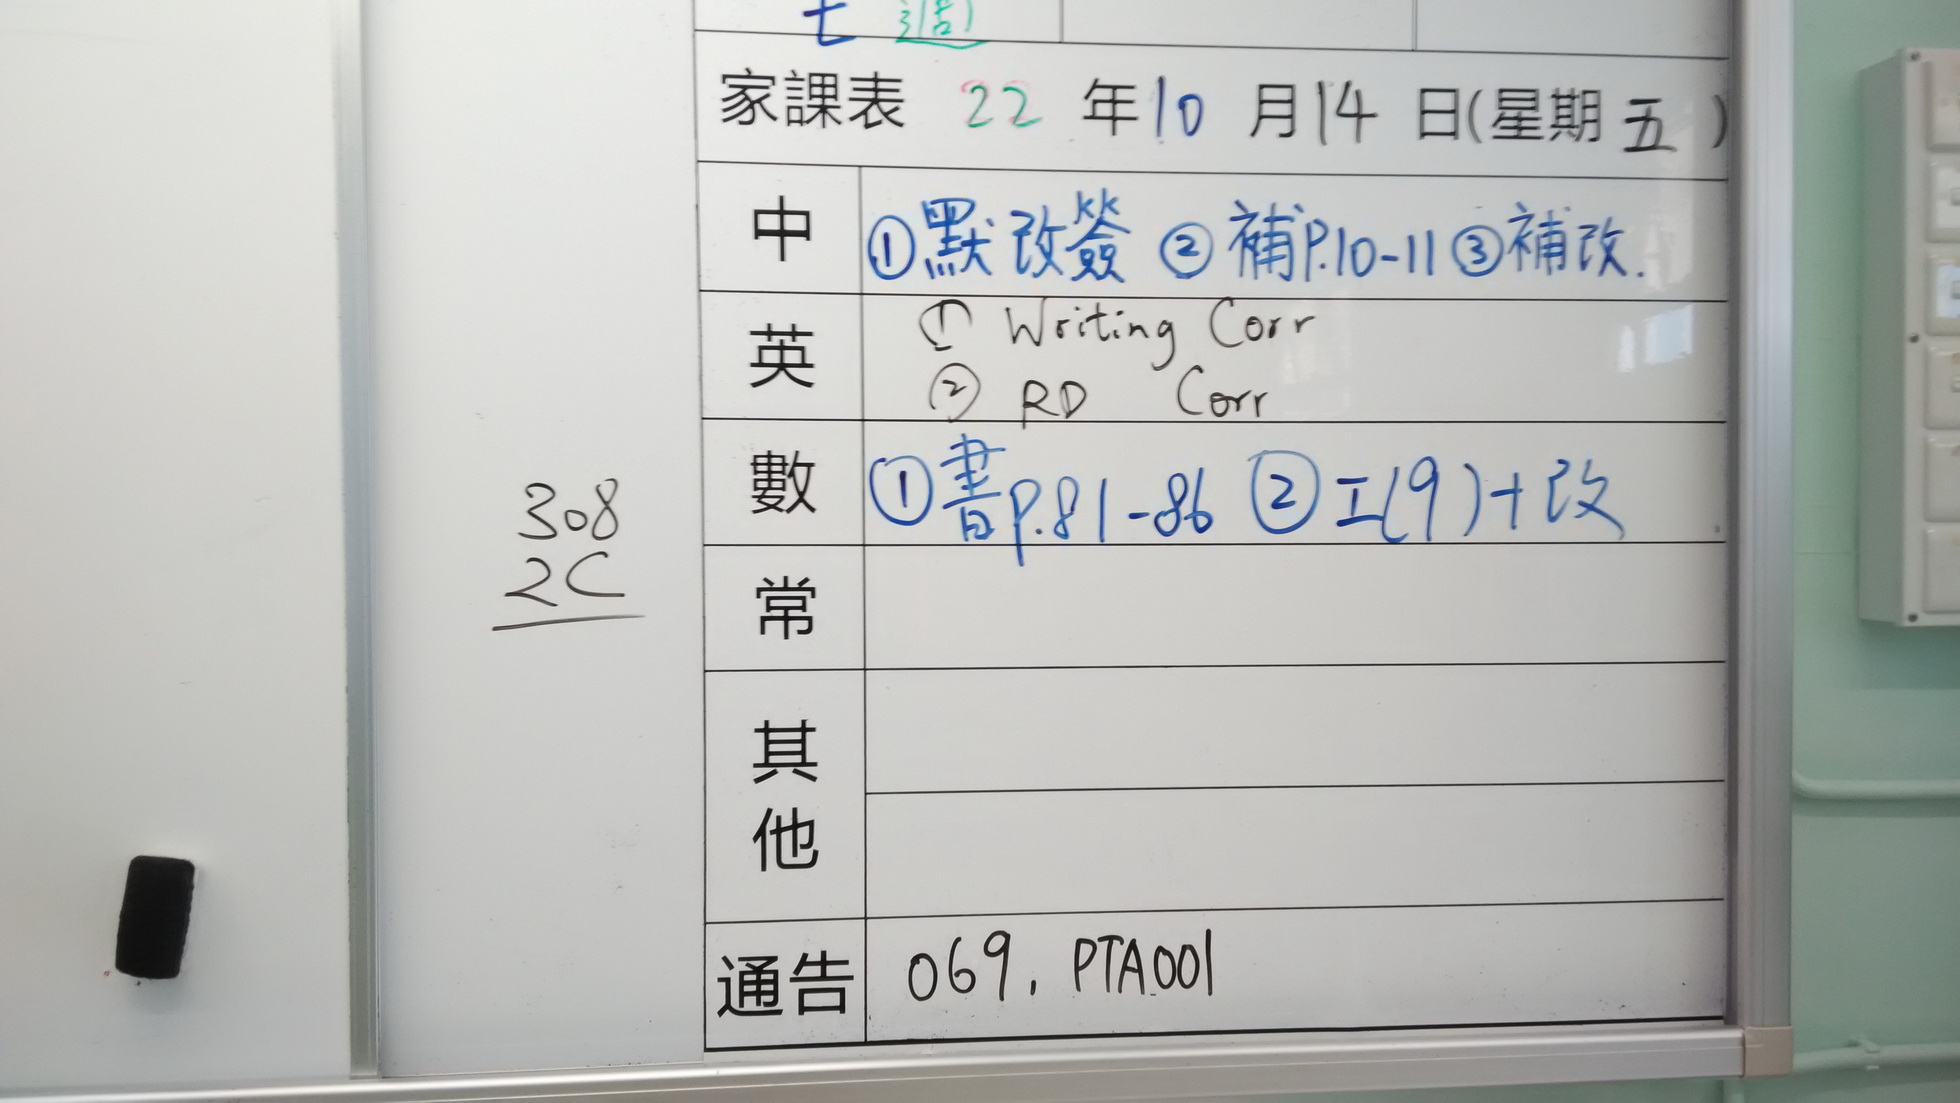 七 週
家課表 22 年 10 月 14 日(星期 五 )
中 ①默改簽 ②補P.10-11 ③補改.
英 ① Writing Corr
② RD Corr
數 ①書P.81-86 ②工(9)+改
308
2C
常
其他
通告 069, PTA001